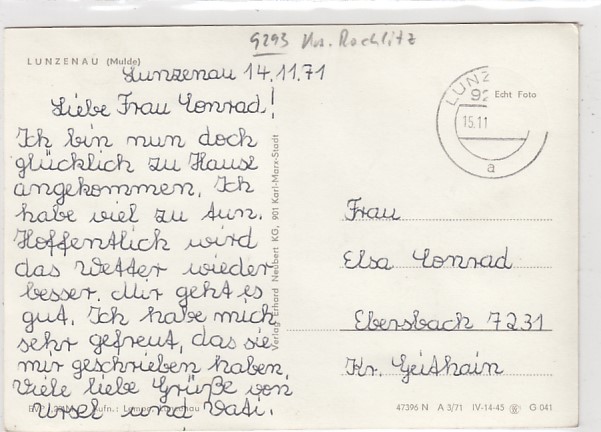 9293 Krs. Rochlitz
LUNZENAU (Mulde)
Lunzenau 14.11.71
Liebe Frau Conrad!
Ich bin nun doch
glücklich zu Hause
angekommen. Ich
habe viel zu tun.
Hoffentlich wird
das Wetter wieder
besser. Mir geht es
gut. Ich habe mich
sehr gefreut, das sie
mir geschrieben haben.
Viele liebe Grüße von
Ursel und Vati.
Verlag Erhard Neubert KG, 901 Karl-Marx-Stadt
LUNZ
92
15.11
a
Echt Foto
Frau
Elsa Conrad
Ebersbach 7231
Kr. Geithain
47396 N A 3/71 IV-14-45 G 041